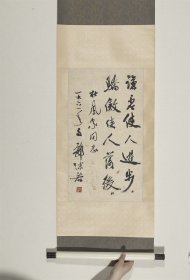 謙虚使人進步，
驕傲使人落後。
同志
一九六一年
郭沫若